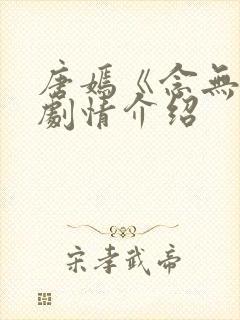 唐嫣《念無
劇情介紹
宋孝武帝